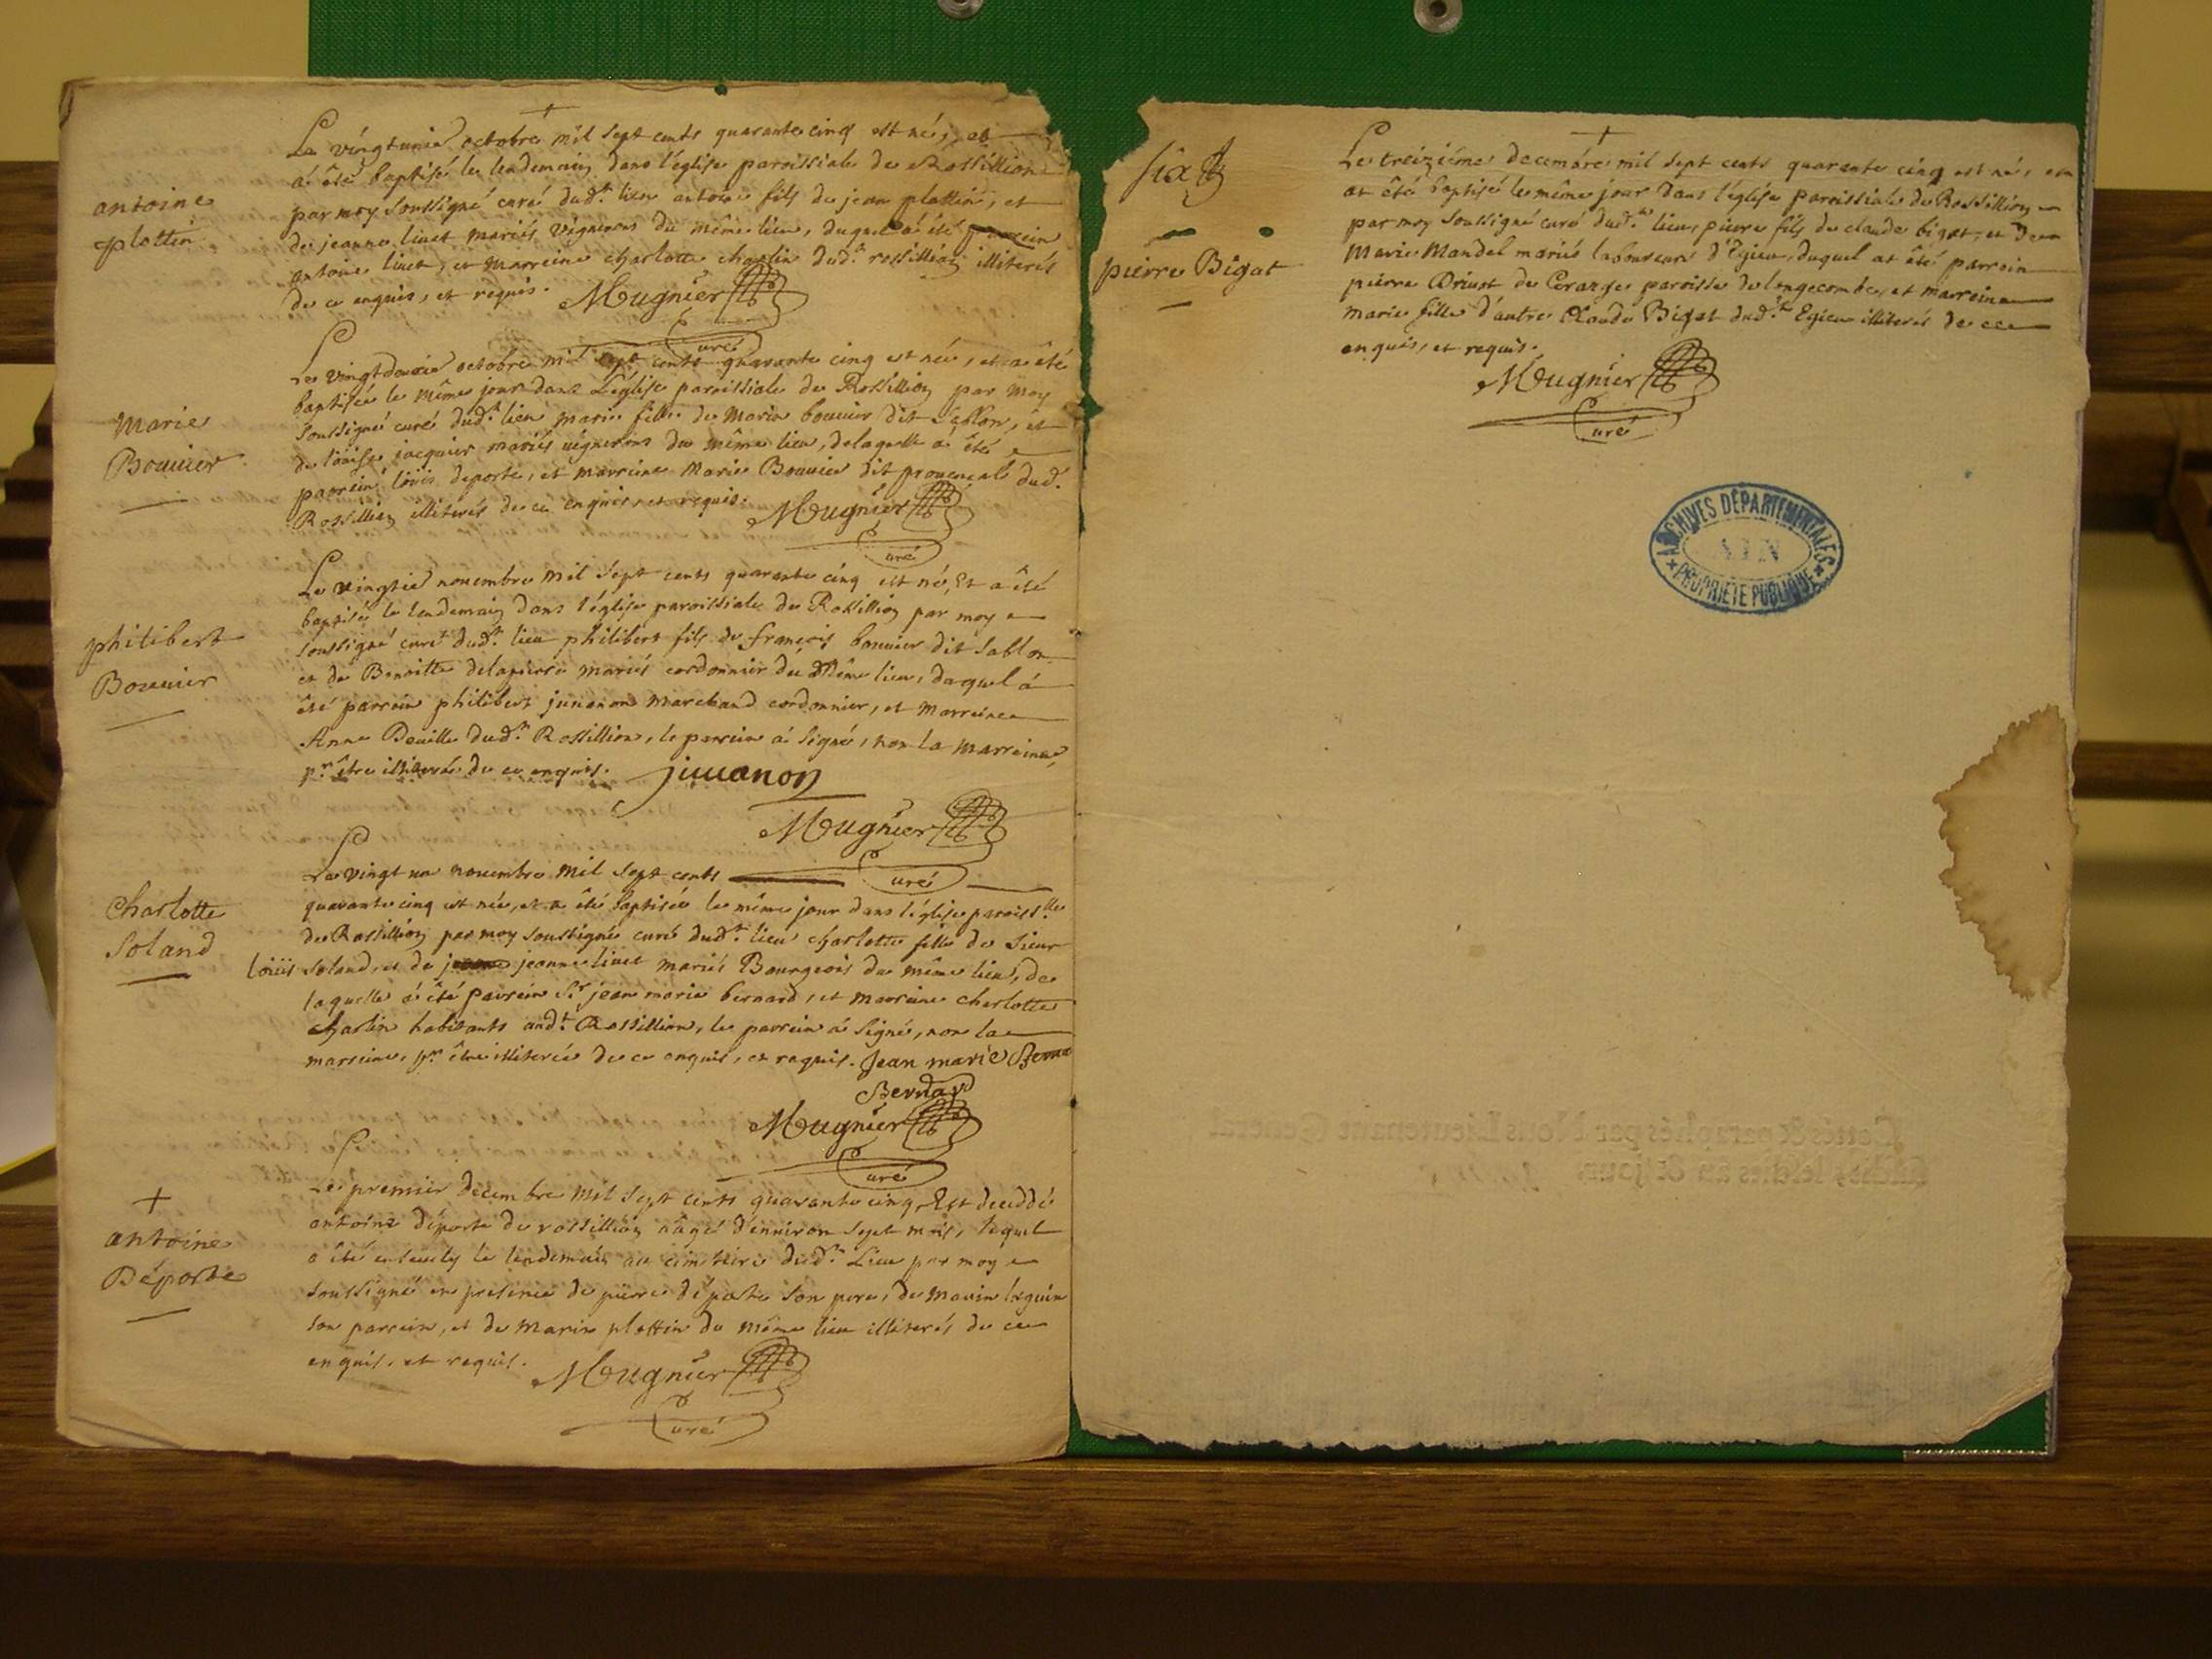 Le vingtunié octobre mil sept cents quarante cinq est né, et
a été baptisé le lendemain dans l'église paroissiale de Rossillion
par moy soussigné curé dud.t lieu antoine fils de jean plattin, et
antoine
plottin
de jeanne livet mariés vignerons du même lieu, duquel a été parrein
antoine livet, et marreine charlotte charlin dud.t rossillion illiterés
de ce enquis, et requis. Mugnier
curé
Le vingtdeuxié octobre mil sept cents quarante cinq est née, et a été
baptisée le même jour dans L'église paroissiale de Rossillion par moy
Marie
Bouuier
soussigné curé dud.t lieu marie fille de Marin bouuier dit sablon, et
de loüise jacquier mariés vignerons du même lieu, delaquelle a été
parrein loüis deporte, et marreine Marie Bouuier dit prouençale dud.t
Rossillion illiterés de ce enquis, et requis. Mugnier
curé
Le vingtié nouembre mil sept cents quarante cinq est né, Et a été
baptisé le lendemain dans l'église paroissiale de Rossillion par moy
philibert
Bouuier
soussigné curé dud.t lieu philibert fils de françois bouuier dit sablon
et de Benoitte delapierre mariés cordonnier du même lieu, duquel a
été parrein philibert juuanon marchand cordonnier, et marreine
Anne Deuille dud.t Rossillion, le parrein a signé, non la marreine,
p.r être illiterée de ce enquis. juuanon
Mugnier
curé
Le vingt un nouembre mil sept cents
charlotte
soland
quarante cinq est née, et a été baptisée le même jour dans l'église paroiss.lle
de Rossillion par moy soussigné curé dud.t lieu charlotte fille de sieur
loüis soland, et de jeanne livet mariés Bourgeois du même lieu, de
laquelle a été parrein S.r jean marie bernard, et marreine charlotte
charlin habitants aud.t Rossillion, le parrein a signé, non la
marreine, p.r être illiterée de ce enquis, et requis. Jean marie Berna
Bernard
Mugnier
curé
Le premier decembre mil sept cents quarante cinq Est decedé
+
antoine
Déporte
antoine déporte de rossillion aagé d'enuiron sept mois, lequel
a été enseuely le lendemain au cimetiere dud.t Lieu par moy
soussigné en presence de pierre déporte son pere, de Marin
son parrein, et de Marin plottin du même lieu illiterés de ce
enquis, et requis. Mugnier
curé
six
pierre Bigot
Le treiziéme decembre mil sept cents quarante cinq est né, et
at été baptisé le même jour dans l'église paroissiale de Rossillion
par moy soussigné curé dud.t lieu, pierre fils de claude bigot, et de
Marie Mandel mariés laboureurs d'Egieu, duquel at été parrein
pierre Driuot de Cerarge paroisse de longecombe, et marreine
marie fille d'autre Claude Bigot dud.t Egieu illiterés de ce
enquis, et requis.
Mugnier
curé
ARCHIVES DÉPARTEMENTALES
AIN
PROPRIÉTÉ PUBLIQUE